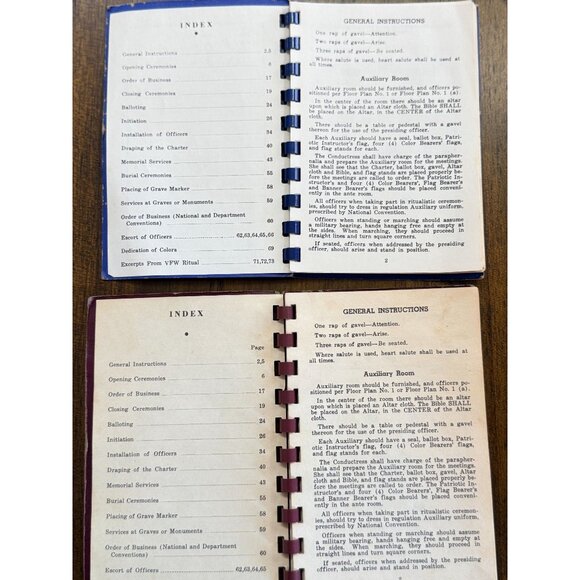 INDEX
General Instructions 2,5
Opening Ceremonies 6
Order of Business 17
Closing Ceremonies 19
Balloting 24
Initiation 26
Installation of Officers 34
Draping of the Charter 40
Memorial Services 43
Burial Ceremonies 55
Placing of Grave Marker 58
Services at Graves or Monuments 59
Order of Business (National and Department
Conventions) 60
Escort of Officers 62,63,64,65,66
Dedication of Colors 69
Excerpts From VFW Ritual 71,72,73
GENERAL INSTRUCTIONS
One rap of gavel—Attention.
Two raps of gavel—Arise.
Three raps of gavel—Be seated.
Where salute is used, heart salute shall be used at
all times.
Auxiliary Room
Auxiliary room should be furnished, and officers po-
sitioned per Floor Plan No. 1 or Floor Plan No. 1 (a).
In the center of the room there should be an altar
upon which is placed an Altar cloth. The Bible SHALL
be placed on the Altar, in the CENTER of the Altar
cloth.
There should be a table or pedestal with a gavel
thereon for the use of the presiding officer.
Each Auxiliary should have a seal, ballot box, Patri-
otic Instructor's flag, and four (4) Color Bearers' flags,
and flag stands for each.
The Conductress shall have charge of the parapher-
nalia and prepare the Auxiliary room for the meetings.
She shall see that the Charter, ballot box, gavel, Altar
cloth and Bible, and flag stands are placed properly be-
fore the meetings are called to order. The Patriotic In-
structor's and four (4) Color Bearers', Flag Bearer's
and Banner Bearers' flags should be placed conveni-
ently in the ante room.
All officers when taking part in ritualistic ceremon-
ies, should try to dress in regulation Auxiliary uniform,
prescribed by National Convention.
Officers when marching or standing should assume
a military bearing, hands hanging free and empty at
the sides. When marching, they should proceed in
straight lines and turn square corners.
If seated, officers when addressed by the presiding
officer, should arise and stand in position.
2
INDEX
Page
General Instructions 2,5
Opening Ceremonies 6
Order of Business 17
Closing Ceremonies 19
Balloting 24
Initiation 26
Installation of Officers 34
Draping of the Charter 40
Memorial Services 43
Burial Ceremonies 55
Placing of Grave Marker 58
Services at Graves or Monuments 59
Order of Business (National and Department
Conventions) 60
Escort of Officers 62,63,64,65
GENERAL INSTRUCTIONS
One rap of gavel—Attention.
Two raps of gavel—Arise.
Three raps of gavel—Be seated.
Where salute is used, heart salute shall be used at
all times.
Auxiliary Room
Auxiliary room should be furnished, and officers po-
sitioned per Floor Plan No. 1 or Floor Plan No. 1 (a).
In the center of the room there should be an altar
upon which is placed an Altar cloth. The Bible SHALL
be placed on the Altar, in the CENTER of the Altar
cloth.
There should be a table or pedestal with a gavel
thereon for the use of the presiding officer.
Each Auxiliary should have a seal, ballot box, Patri-
otic Instructor's flag, and four (4) Color Bearers' flags,
and flag stands for each.
The Conductress shall have charge of the parapher-
nalia and prepare the Auxiliary room for the meetings.
She shall see that the Charter, ballot box, gavel, Altar
cloth and Bible, and flag stands are placed properly be-
fore the meetings are called to order. The Patriotic In-
structor's and four (4) Color Bearers', Flag Bearer's
and Banner Bearers' flags should be placed conveni-
ently in the ante room.
All officers when taking part in ritualistic ceremon-
ies, should try to dress in regulation Auxiliary uniform,
prescribed by National Convention.
Officers when marching or standing should assume
a military bearing, hands hanging free and empty at
the sides. When marching, they should proceed in
straight lines and turn square corners.
If seated, officers when addressed by the presiding
officer, should arise and stand in position.